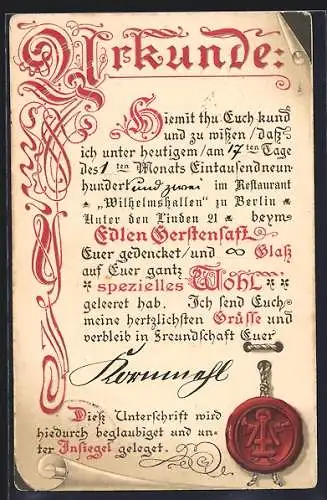 Urkunde:
Hiemit thu Euch kund
und zu wißen / daß
ich unter heutigem / am 17ten Tage
des 1ten Monats Eintausendneun-
hundert und zwei im Restaurant
„Wilhelmshallen“ zu Berlin
Unter den Linden 21 beym
Edlen Gerstensaft
Euer gedencket / und ∞ Glaß
auf Euer gantz
spezielles Wohl
geleeret hab. Ich send Euch
meine hertzlichsten Grüsse und
verbleib in Freundschaft Euer
Kornmehl
Dieß Unterschrift wird
hiedurch beglaubiget und un-
ter Insiegel geleget.